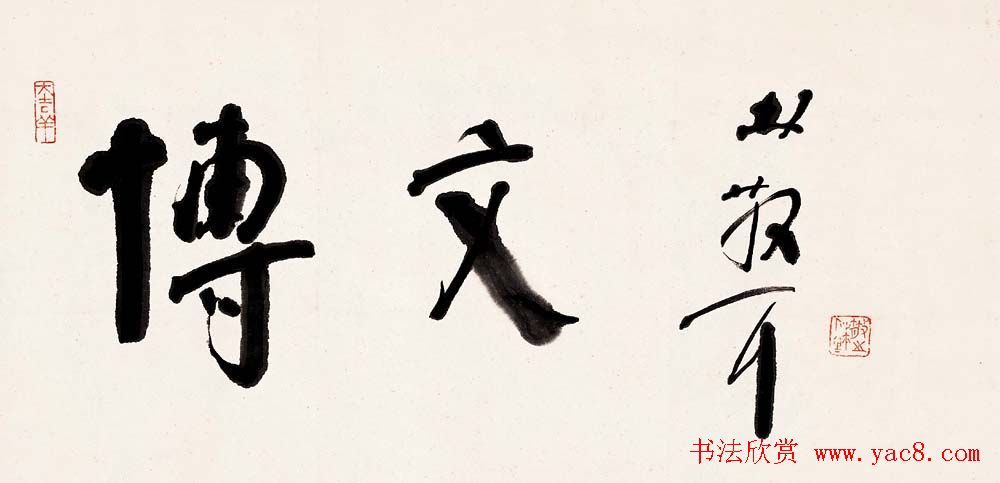 大吉羊
博文
林散耳
书法欣赏 www.yac8.com